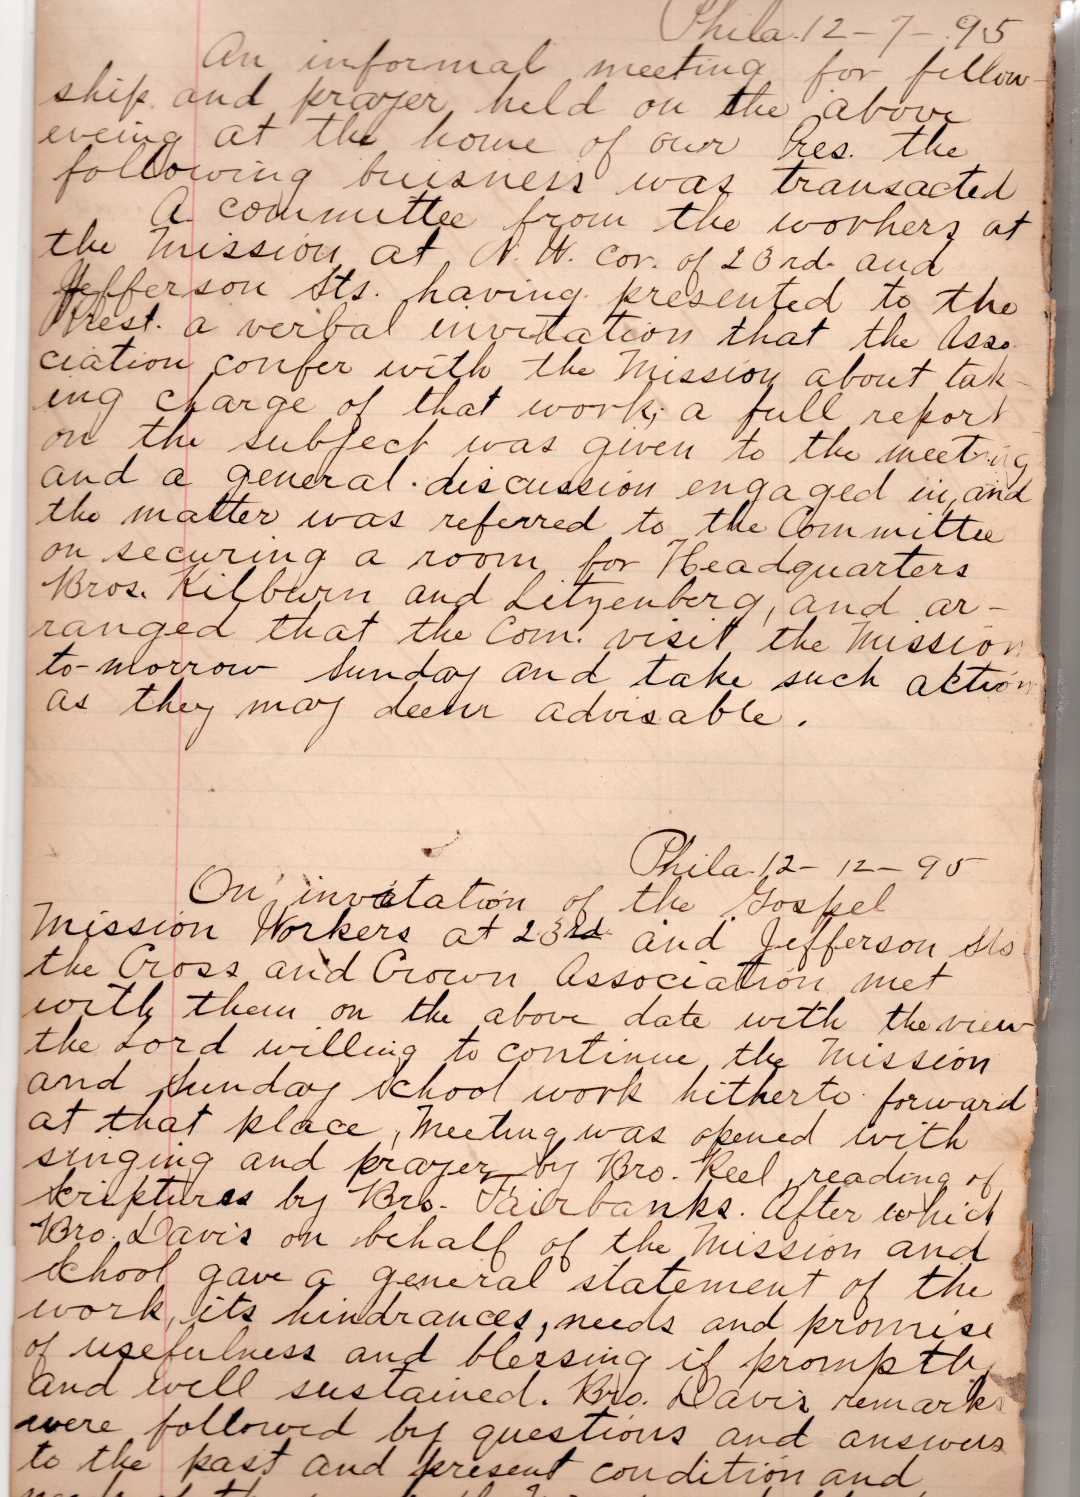 Phila. 12-7-95
An informal meeting for fellow-
ship and prayer held on the above
eveing at the home of our Pres. the
following buisness was transacted
A committee from the workers at
the Mission at N. W. cor. of 23rd and
Jefferson Sts. having presented to the
Prest. a verbal invitation that the Asso-
ciation confer with the Mission about tak-
ing charge of that work; a full report
on the subject was given to the meeting
and a general discussion engaged in, and
the matter was referred to the Committee
on securing a room for Headquarters
Bros. Kilburn and Litzenberg, and ar-
ranged that the Com. visit the Mission
to-morrow Sunday and take such action
as they may deem advisable.
Phila. 12-12-95
On invitation of the Gospel
Mission Workers at 23rd and Jefferson Sts
the Cross and Crown Association met
with them on the above date with the view
the Lord willing to continue the Mission
and Sunday School work hitherto forward
at that place, Meeting was opened with
singing and prayer by Bro. Reel, reading of
Scriptures by Bro. Fairbanks. After which
Bro. Davis on behalf of the Mission and
School gave a general statement of the
work, its hindrances, needs and promise
of usefulness and blessing if promptly
and well sustained. Bro. Davis remarks
were followed by questions and answers
to the past and present condition and